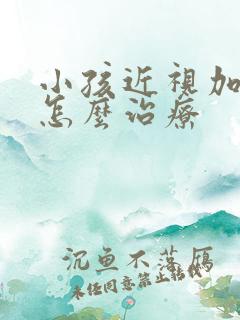 小孩近視加
怎麼治療
沉魚不落雁
未经同意禁止转载